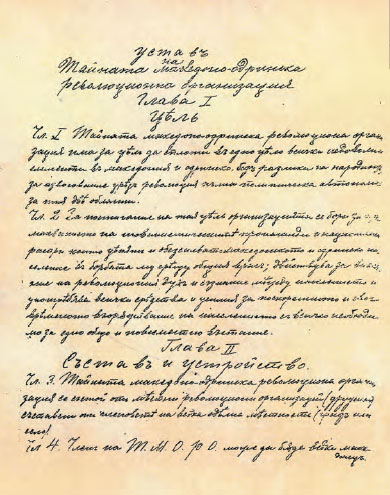 Уставъ
на
Тайната Македоно-одринска
революционна организация
Глава I
Цѣль
Чл. I Тайната македоно-одринска революционна орган
зация има за цѣль да сплоти въ едно цѣло всички недоволни
елементи въ македония и одринско, безъ разлика на народнос
за извоювание чрезъ революция пълна политическа автономия
за тия двѣ области.
Чл. 2. За постигание на тая цѣль организацията се бори за
на шовинистическитѣ пропаганди и национални
распри които цѣпятъ и обезсилватъ македонското и одринско на
селение въ борбата му срѣщу общия врагъ; дѣйствува за
на революционния духъ и съзнание между населението и
употрѣбява всички срѣдства и усилия за
врѣменното въорѫжавание на населението съ всичко необходи
мо за едно общо и повсемѣстно въстание.
Глава II
Съставъ и устройство.
Чл. 3. Тайната македоно-одринска революционна органи
зация се състои отъ мѣстни революционни организации (дружини)
съставени отъ членоветѣ на всѣка мѣстность (градъ или
село)
Чл 4. Членъ на Т. М. О. Р. О. може да бѫде всѣки маке
донецъ